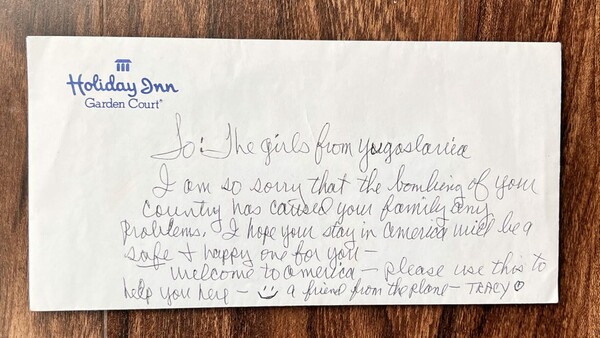 Holiday Inn
Garden Court®
To: The girls from Yugoslavia
I am so sorry that the bombing of your
country has caused your family any
problems. I hope your stay in America will be a
safe + happy one for you –
welcome to America – please use this to
help you here – ☺ a friend from the plane – TRACY